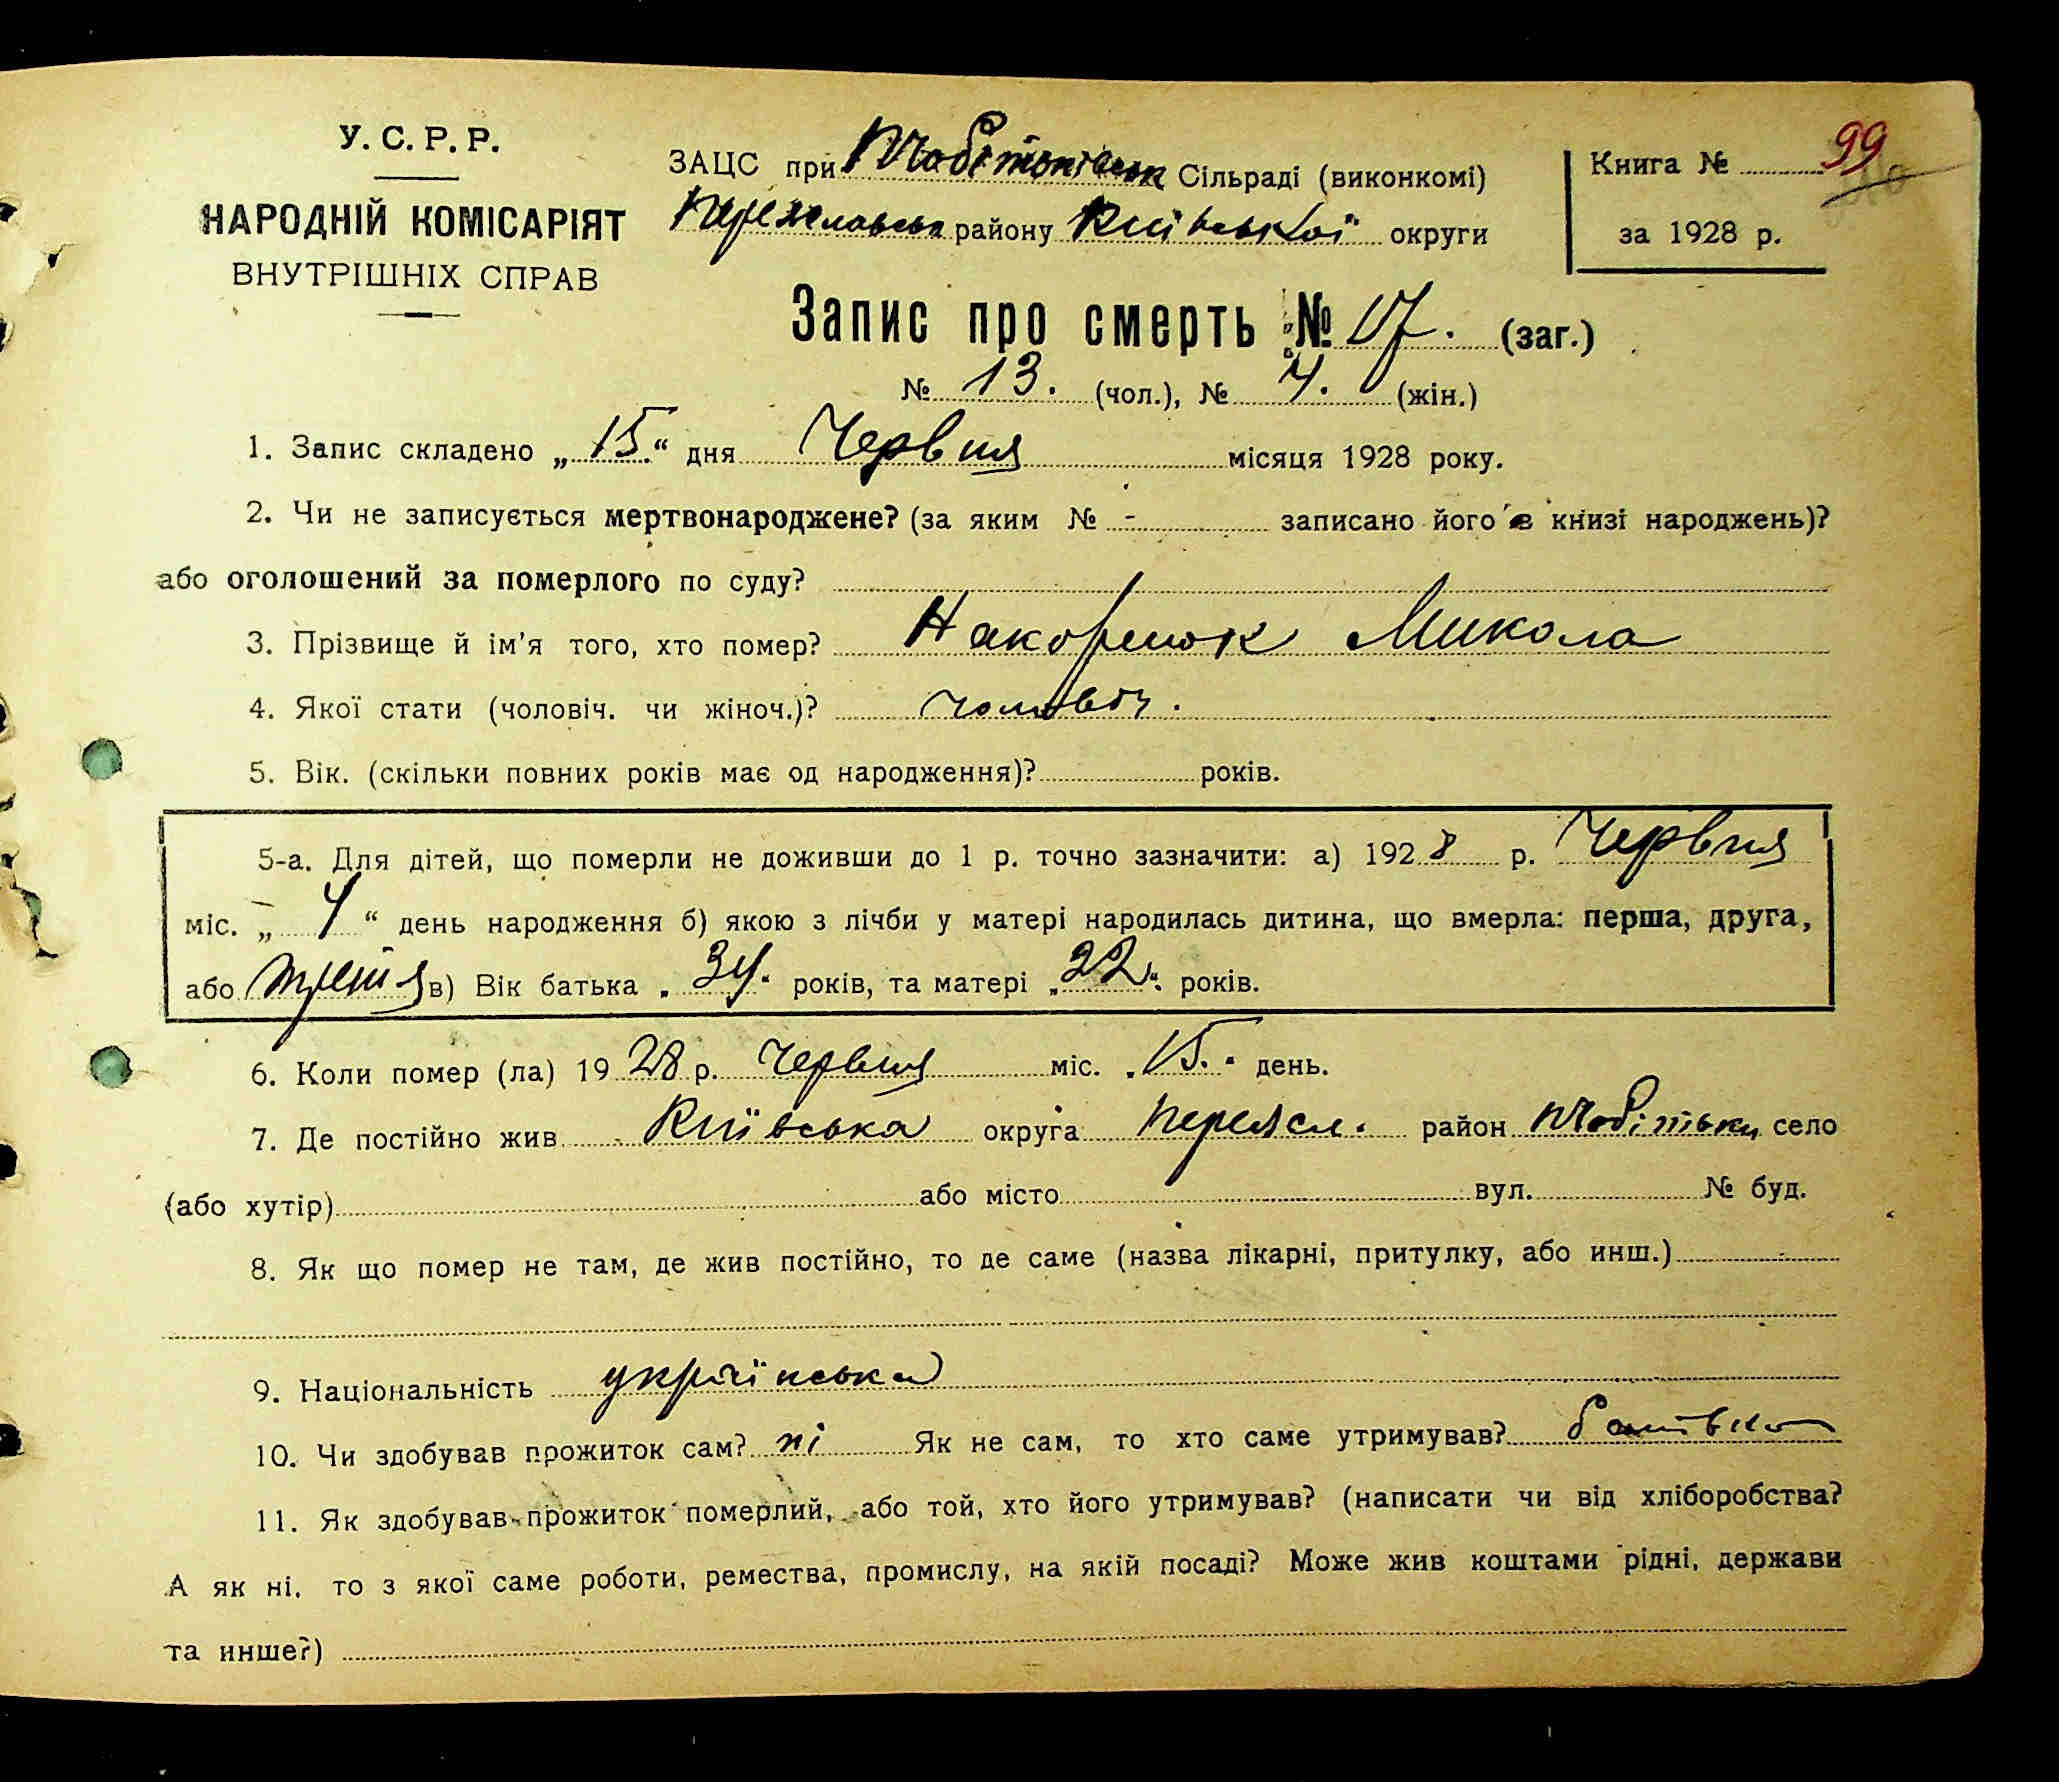 У. С. Р. Р.
НАРОДНІЙ КОМІСАРІЯТ
ВНУТРІШНІХ СПРАВ
ЗАЦС при Сільраді (виконкомі)
району Київської округи
Книга № 99
за 1928 р.
Запис про смерть № 17. (заг.)
№ 13. (чол.), № 4. (жін.)
1. Запис складено „15.“ дня Червня місяця 1928 року.
2. Чи не записується мертвонароджене? (за яким № - записано його в книзі народжень)?
або оголошений за померлого по суду?
3. Прізвище й ім'я того, хто помер? Накоренок Микола
4. Якої стати (чоловіч. чи жіноч.)? чоловіч.
5. Вік. (скільки повних років має од народження)? років.
5-а. Для дітей, що померли не доживши до 1 р. точно зазначити: а) 1928 р. Червня
міс. „ 4 “ день народження б) якою з лічби у матері народилась дитина, що вмерла: перша, друга,
або третя в) Вік батька „34“ років, та матері „22“ років.
6. Коли помер (ла) 1928 р. Червня міс. „15.“ день.
7. Де постійно жив Київська округа Переясл. район село
(або хутір) або місто вул. № буд.
8. Як що помер не там, де жив постійно, то де саме (назва лікарні, притулку, або инш.)
9. Національність українська
10. Чи здобував прожиток сам? ні Як не сам, то хто саме утримував? батько
11. Як здобував прожиток померлий, або той, хто його утримував? (написати чи від хліборобства?
А як ні, то з якої саме роботи, ремества, промислу, на якій посаді? Може жив коштами рідні, держави
та инше?)